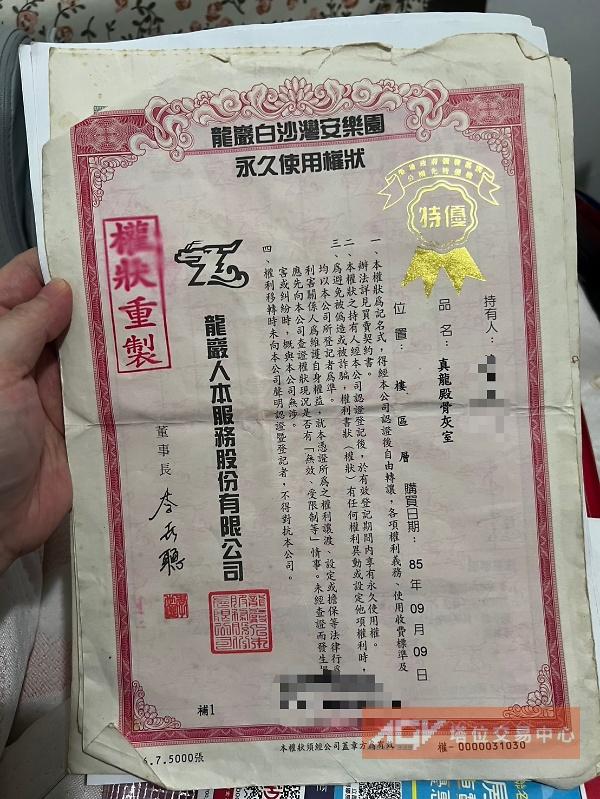 龍巖白沙灣安樂園
永久使用權狀
特優
持有人：
品名：真龍殿骨灰室
位置：樓 區 層 購買日期：85年09月09日
一、本權狀為記名式，得經本公司認證後自由轉讓，各項權利義務、使用收費標準及
辦法詳見買賣契約書。
二、本權狀之持有人經本公司認證登記後，於有效登記期間內享有永久使用權。
三、為避免被偽造或被詐騙，權利書狀（權狀）有任何權利異動或設定他項權利時，
均以本公司所登記者為準。
利害關係人為維護自身權益，就本憑證所為之權利讓渡、設定或擔保等法律行為
應先向本公司查證權狀現況是否有「無效、受限制等」情事。未經查證而發生損
害或糾紛時，概與本公司無涉。
四、權利移轉時未向本公司聲明認證暨登記者，不得對抗本公司。
龍巖人本服務股份有限公司
董事長 李世聰
權狀重製
補1
.7.5000張
本權狀須經公司蓋章方為有效
權-0000031030
塔位交易中心